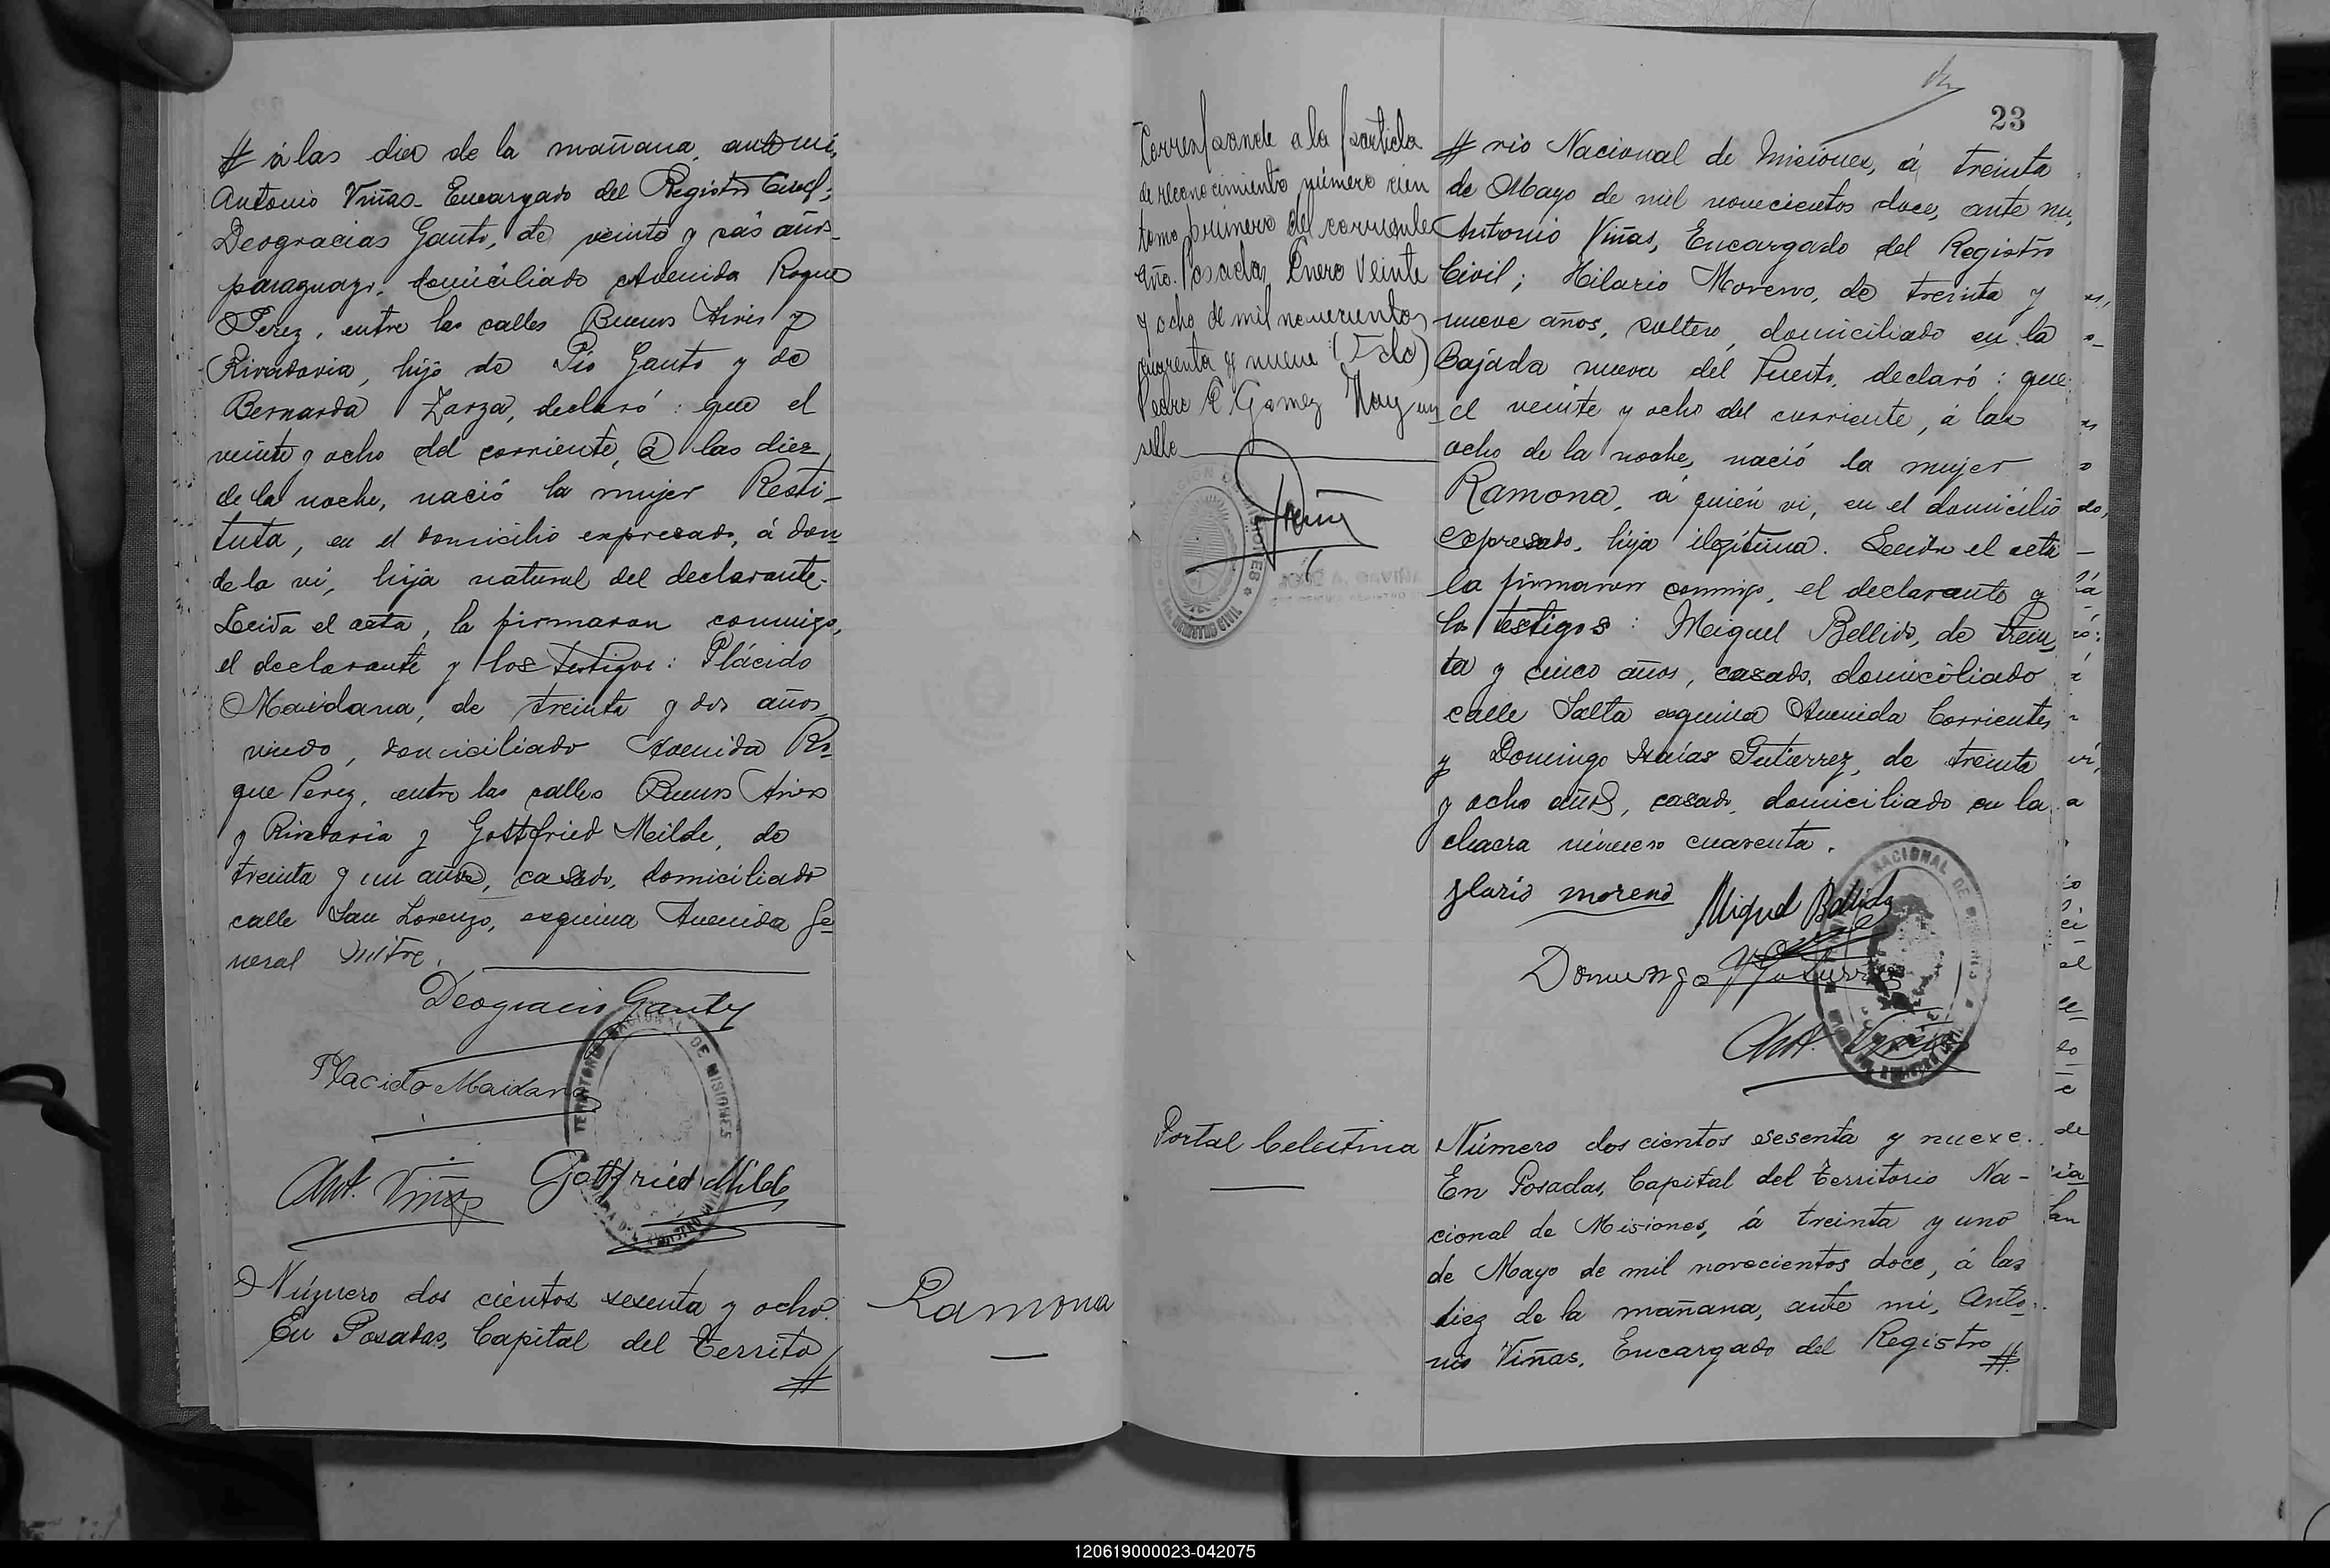 # á las diez de la mañana, ante mi,
Antonio Viñas Encargado del Registro Civil;
Deogracias Gauto, de veinte y seis años
paraguayo, domiciliado Avenida Roque
Perez, entre las calles Buenos Aires y
Rivadavia, hijo de Pío Gauto y de
Bernarda Zarza, declaró: que el
veinte y ocho del corriente, á las diez
de la noche, nació la mujer Resti-
tuta, en el domicilio expresado, á don
de la vi, hija natural del declarante.
Leida el acta, la firmaron conmigo,
el declarante y los testigos: Plácido
Maidana, de treinta y dos años
viudo, domiciliado Avenida Ro-
que Perez, entre las calles Buenos Aires
y Rivadavia y Gottfried Milde, de
treinta y un años, casado, domiciliado
calle San Lorenzo, esquina Avenida Ge-
neral Mitre.
Deogracias Gauto
Placido Maidana
Ant. Viñas
Gottfried Milde
TERRITORIO NACIONAL DE MISIONES
Número dos cientos sesenta y ocho.
En Posadas, Capital del Territo
#
Ramona
23
Corresponde a la partida
de reconocimiento número cien
tomo primero del corriente
año. Posadas, Enero veinte
y ocho de mil novecientos
cuarenta y nueve (Fdo)
Pedro E Gomez Hay un
sello
MISIONES
REGISTRO CIVIL
# rio Nacional de Misiones, á treinta
de Mayo de mil novecientos doce, ante mi,
Antonio Viñas, Encargado del Registro
Civil; Hilario Moreno, de treinta y
nueve años, soltero, domiciliado en la
Bajada nueva del Puerto, declaró: que
el veinte y ocho del corriente, á las
ocho de la noche, nació la mujer
Ramona, á quién vi, en el domicilio
expresado, hija ilegítima. Leida el acta
la firmaron conmigo, el declarante y
los testigos: Miguel Bellido, de trein
ta y cinco años, casado, domiciliado
calle Salta esquina Avenida Corrientes
y Domingo Isaías Gutierrez, de treinta
y ocho años, casado, domiciliado en la
chacra número cuarenta.
Ylario moreno
Miguel Bellido
Domingo Y Gutierrez
Ant. Viñas
NACIONAL DE MISIONES
Portal Celestina
Número dos cientos sesenta y nueve.
En Posadas, Capital del Territorio Na-
cional de Misiones, á treinta y uno
de Mayo de mil novecientos doce, á las
diez de la mañana, ante mi, Anto-
nio Viñas, Encargado del Registro #
120619000023-042075